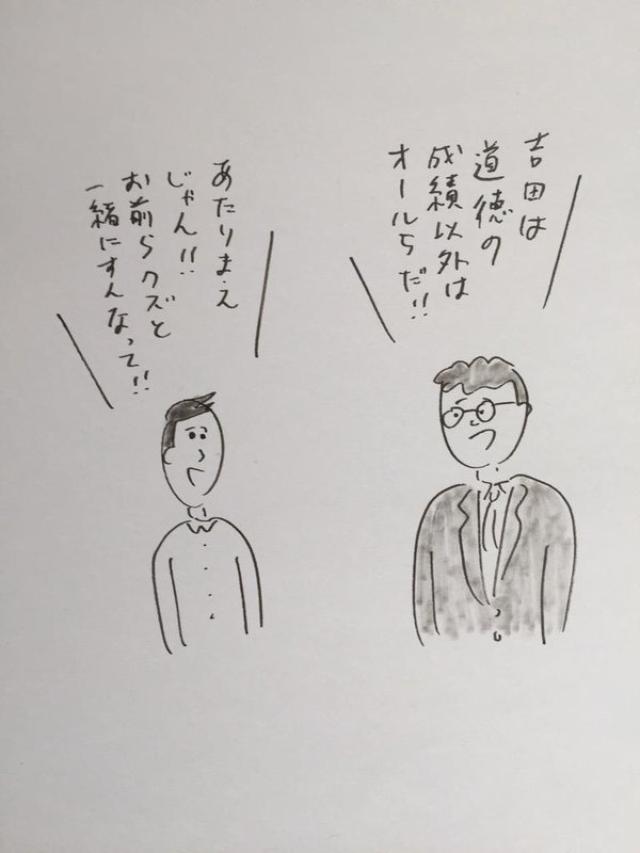 吉田は
道徳の
成績以外は
オール5だ!!
あたりまえ
じゃん!!
お前らクズと
一緒にすんなって!!